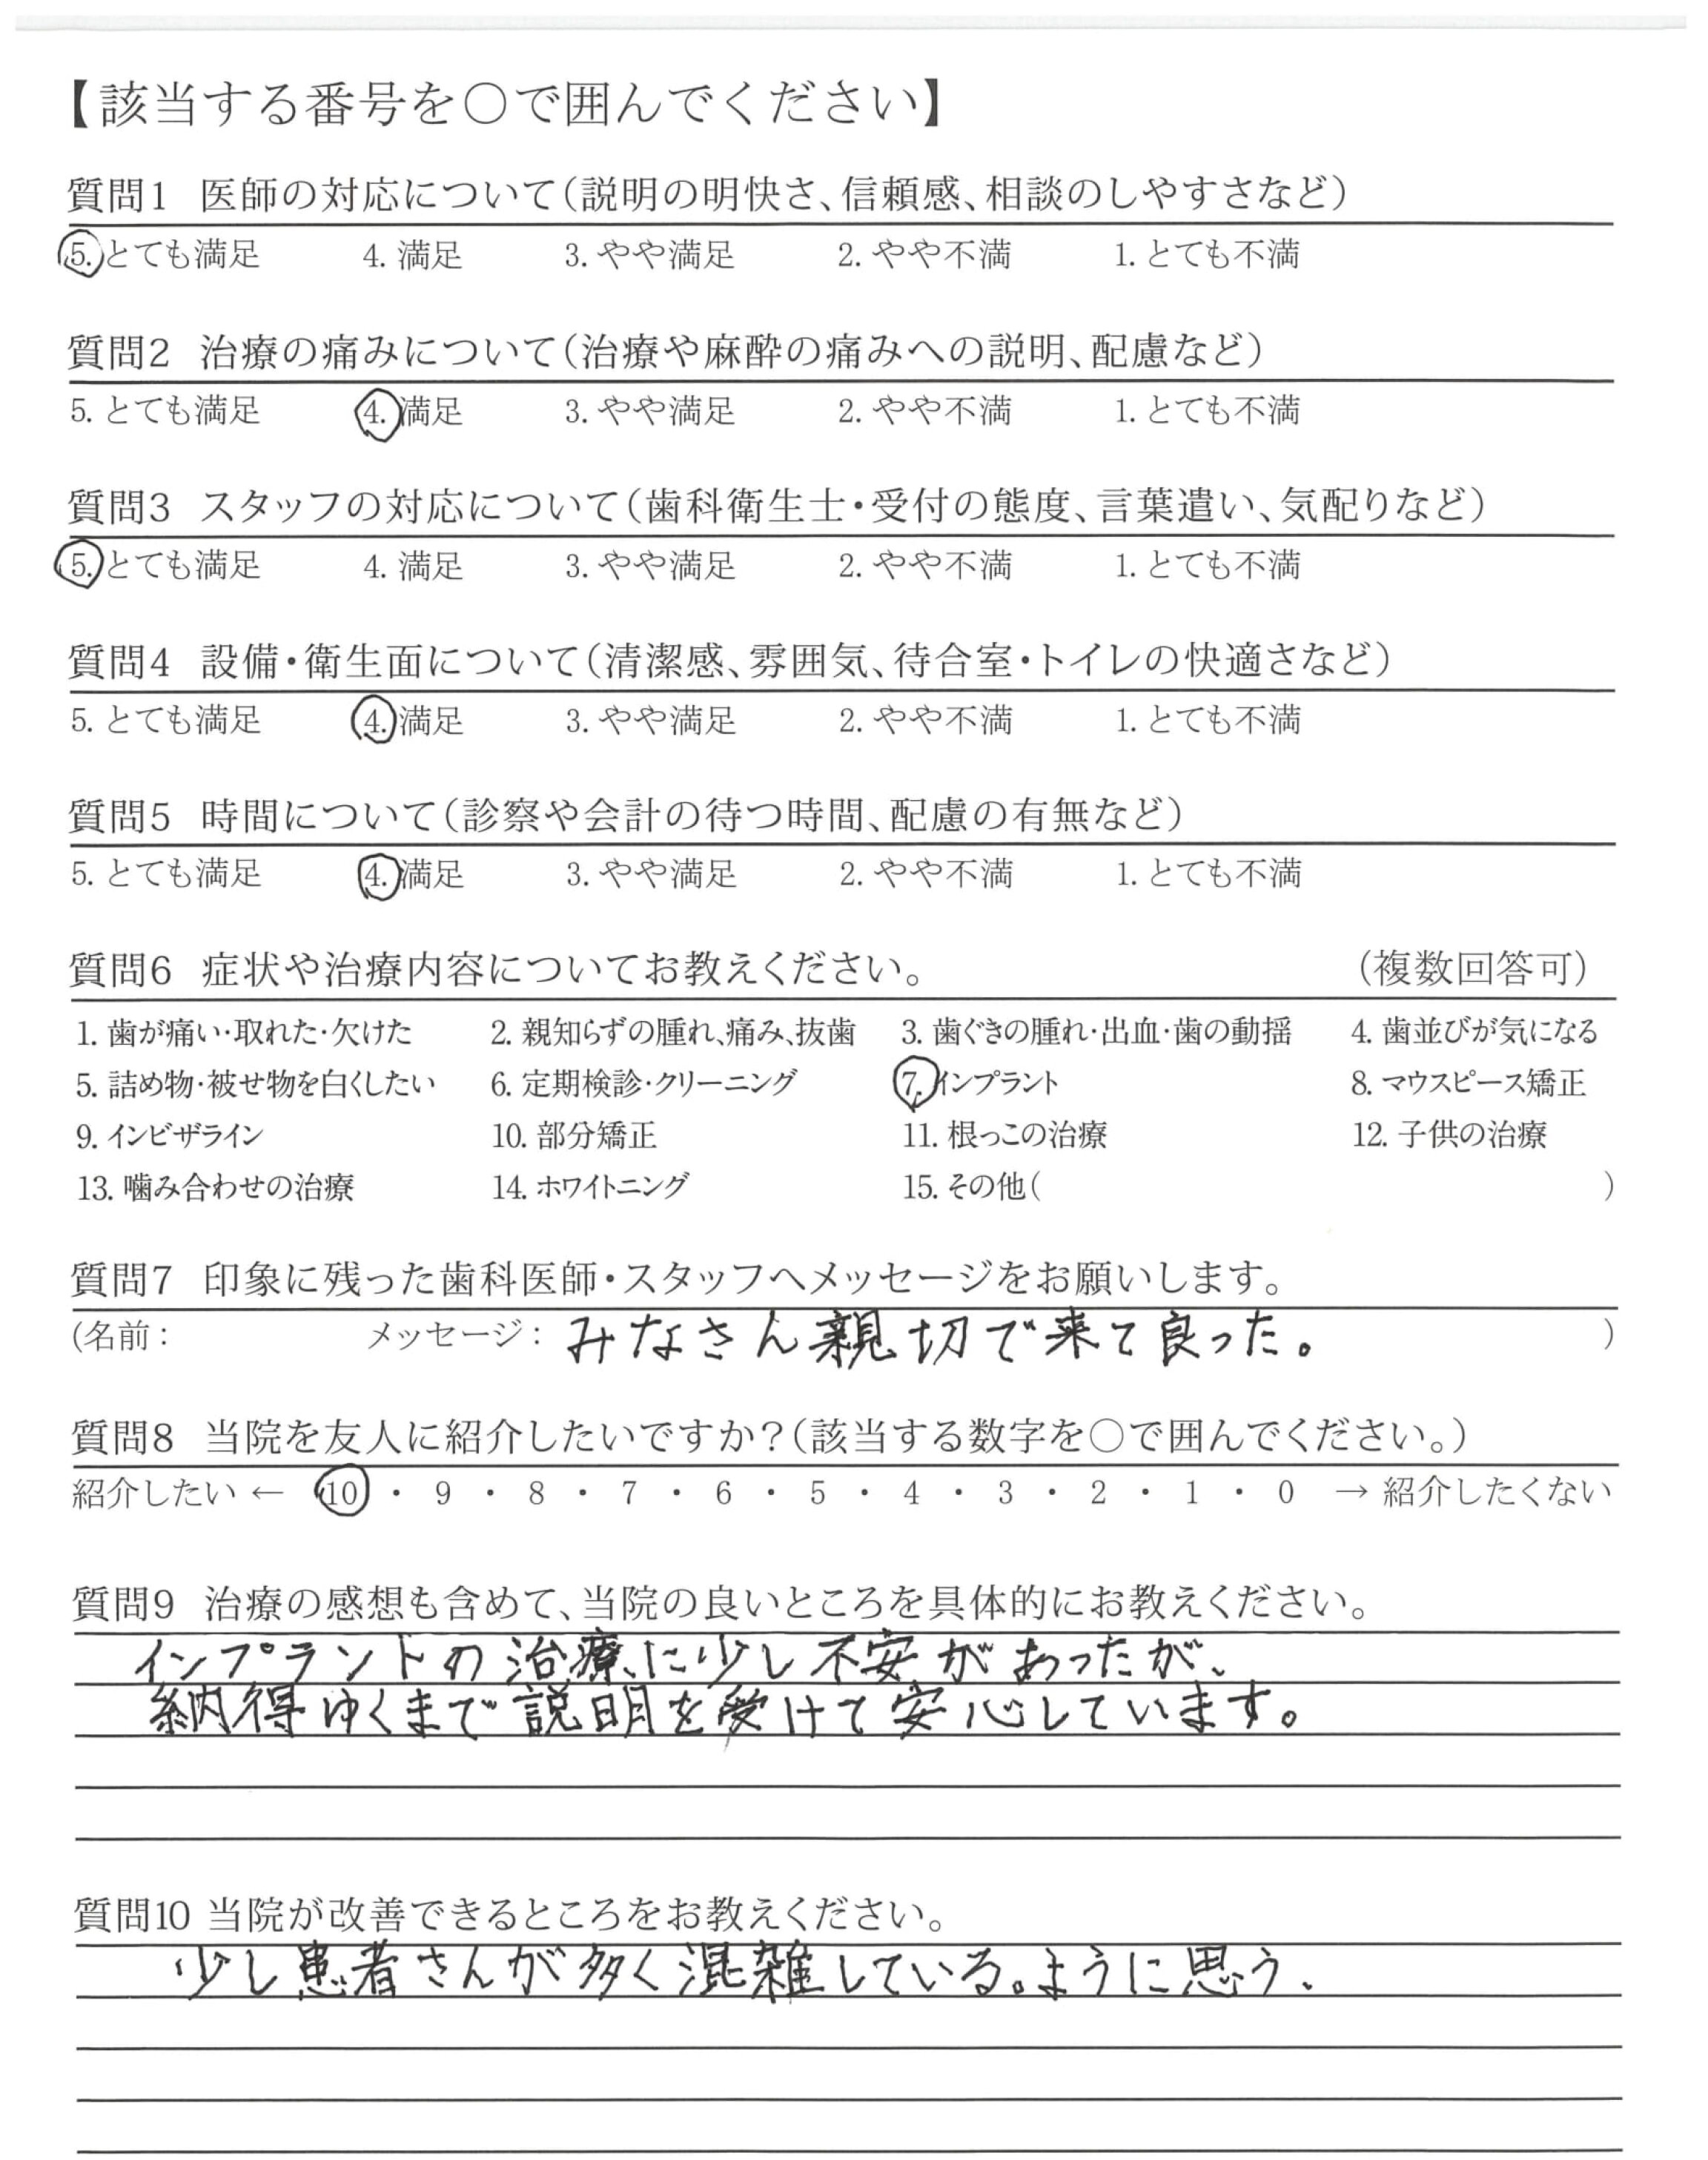 【該当する番号を○で囲んでください】
質問1 医師の対応について(説明の明快さ、信頼感、相談のしやすさなど)
5. とても満足 4. 満足 3. やや満足 2. やや不満 1. とても不満
質問2 治療の痛みについて(治療や麻酔の痛みへの説明、配慮など)
5. とても満足 4. 満足 3. やや満足 2. やや不満 1. とても不満
質問3 スタッフの対応について(歯科衛生士・受付の態度、言葉遣い、気配りなど)
5. とても満足 4. 満足 3. やや満足 2. やや不満 1. とても不満
質問4 設備・衛生面について(清潔感、雰囲気、待合室・トイレの快適さなど)
5. とても満足 4. 満足 3. やや満足 2. やや不満 1. とても不満
質問5 時間について(診察や会計の待つ時間、配慮の有無など)
5. とても満足 4. 満足 3. やや満足 2. やや不満 1. とても不満
質問6 症状や治療内容についてお教えください。 (複数回答可)
1. 歯が痛い・取れた・欠けた 2. 親知らずの腫れ、痛み、抜歯 3. 歯ぐきの腫れ・出血・歯の動揺 4. 歯並びが気になる
5. 詰め物・被せ物を白くしたい 6. 定期検診・クリーニング 7. インプラント 8. マウスピース矯正
9. インビザライン 10. 部分矯正 11. 根っこの治療 12. 子供の治療
13. 噛み合わせの治療 14. ホワイトニング 15. その他( )
質問7 印象に残った歯科医師・スタッフへメッセージをお願いします。
(名前: メッセージ: みなさん親切で来て良った。 )
質問8 当院を友人に紹介したいですか?(該当する数字を○で囲んでください。)
紹介したい ← 10 ・ 9 ・ 8 ・ 7 ・ 6 ・ 5 ・ 4 ・ 3 ・ 2 ・ 1 ・ 0 → 紹介したくない
質問9 治療の感想も含めて、当院の良いところを具体的にお教えください。
インプラントの治療に少し不安があったが、
納得ゆくまで説明を受けて安心しています。
質問10 当院が改善できるところをお教えください。
少し患者さんが多く混雑している。ように思う、